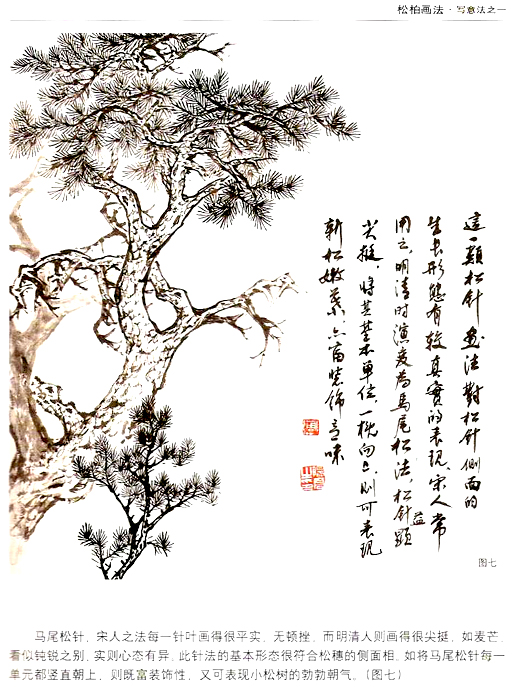 松柏画法·写意法之一
這一類松針畫法對松針側面的
生長形態有較真實的表現宋人常
用之,明清时演变為馬尾松法,松針益顯
尖挺,将其基本單位一概向上,則可表現
新松嫩葉,亦富裝飾意味
图七
马尾松针,宋人之法每一针叶画得很平实,无顿挫,而明清人则画得很尖挺,如麦芒,
看似钝锐之别,实则心态有异,此针法的基本形态很符合松穗的侧面相,如将马尾松针每一
单元都竖直朝上,则既富装饰性,又可表现小松树的勃勃朝气。(图七)